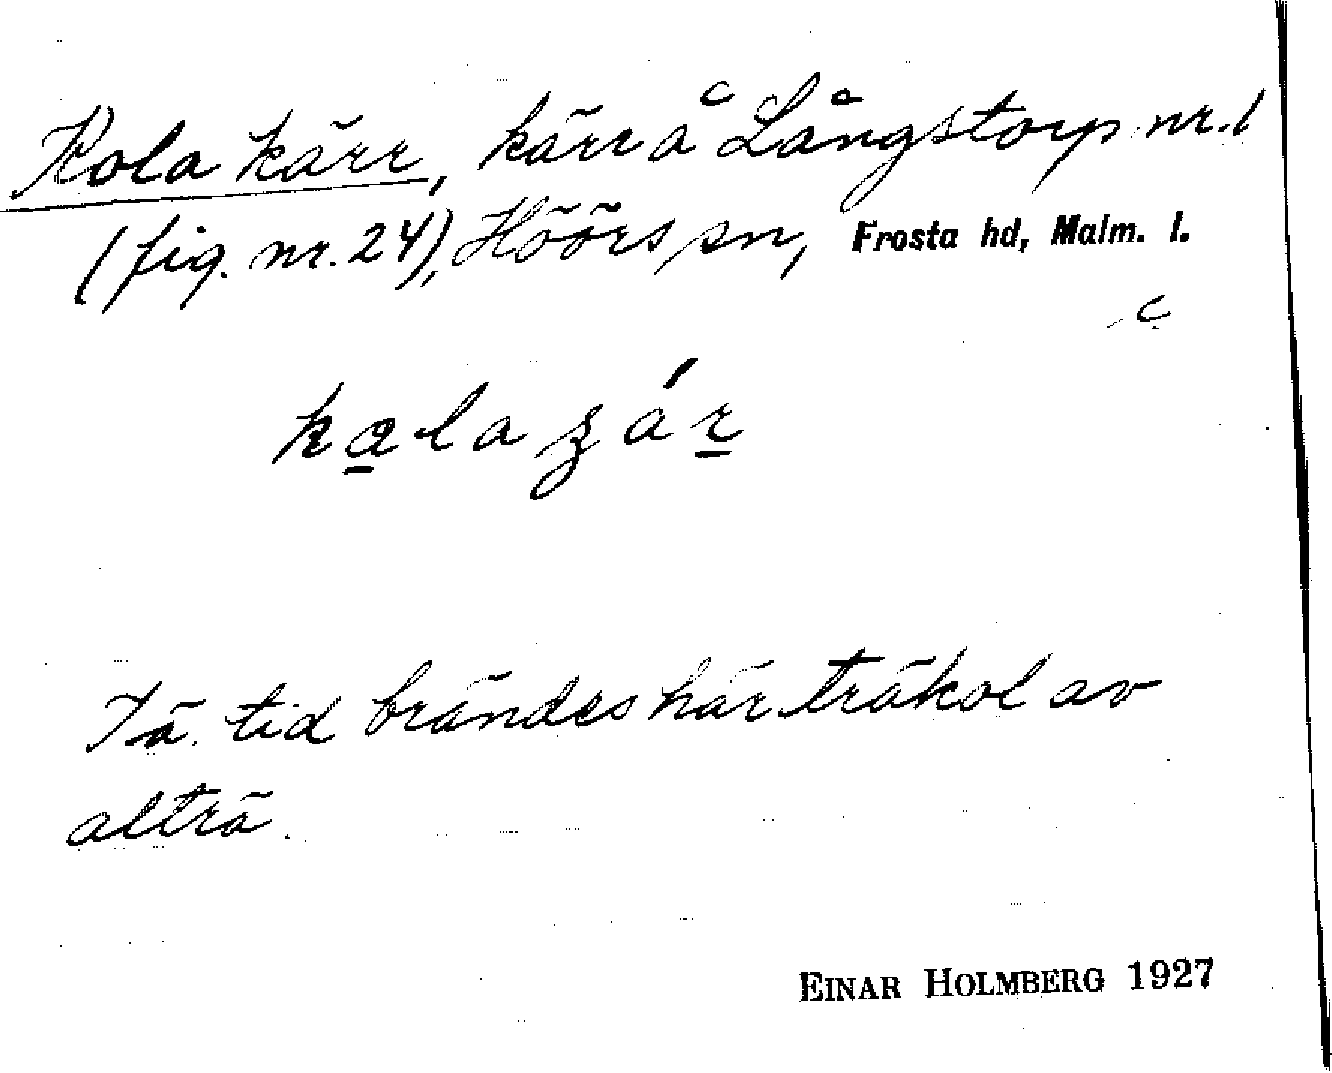 Kola kärr, kärr å Långstorp nr. 1
(fig. nr. 24), Höörs sn, Frosta hd, Malm. l.
I ä. tid brändes här träkol av
alträ.
EINAR HOLMBERG 1927